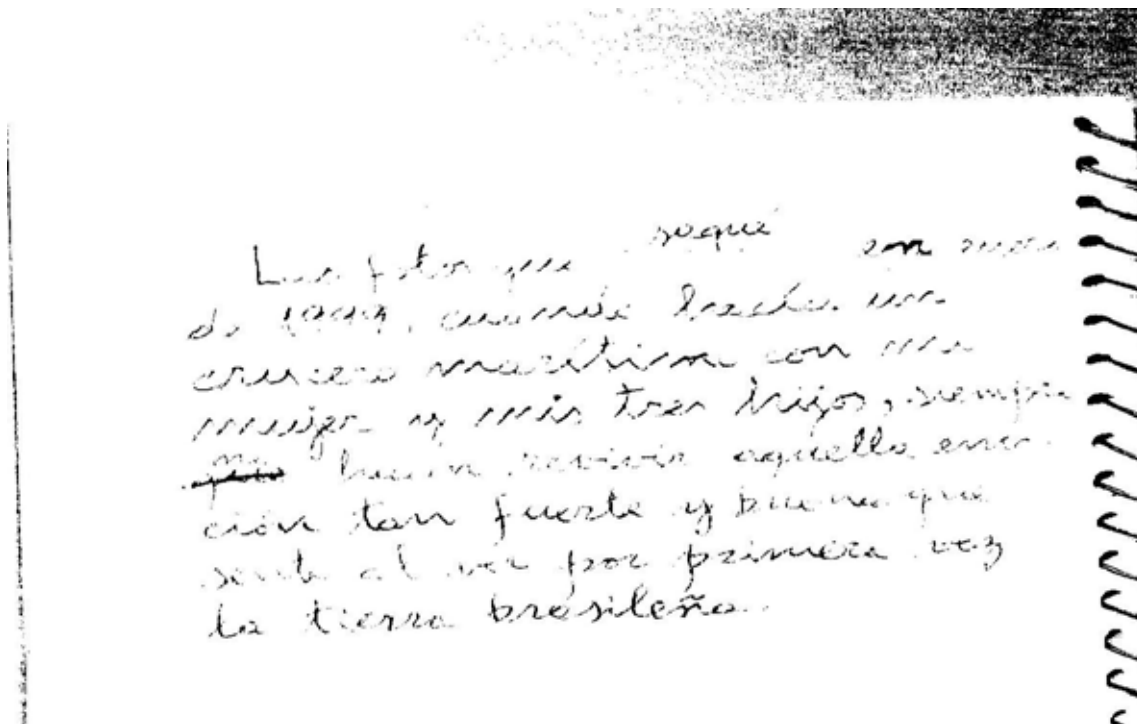 Las fotos que saqué en
de 1999, cuando hacía un
crucero marítimo con mi
mujer y mis tres hijos, siempre
me hacen revivir aquella emo-
ción tan fuerte y buena que
sentí al ver por primera vez
la tierra brasileña.